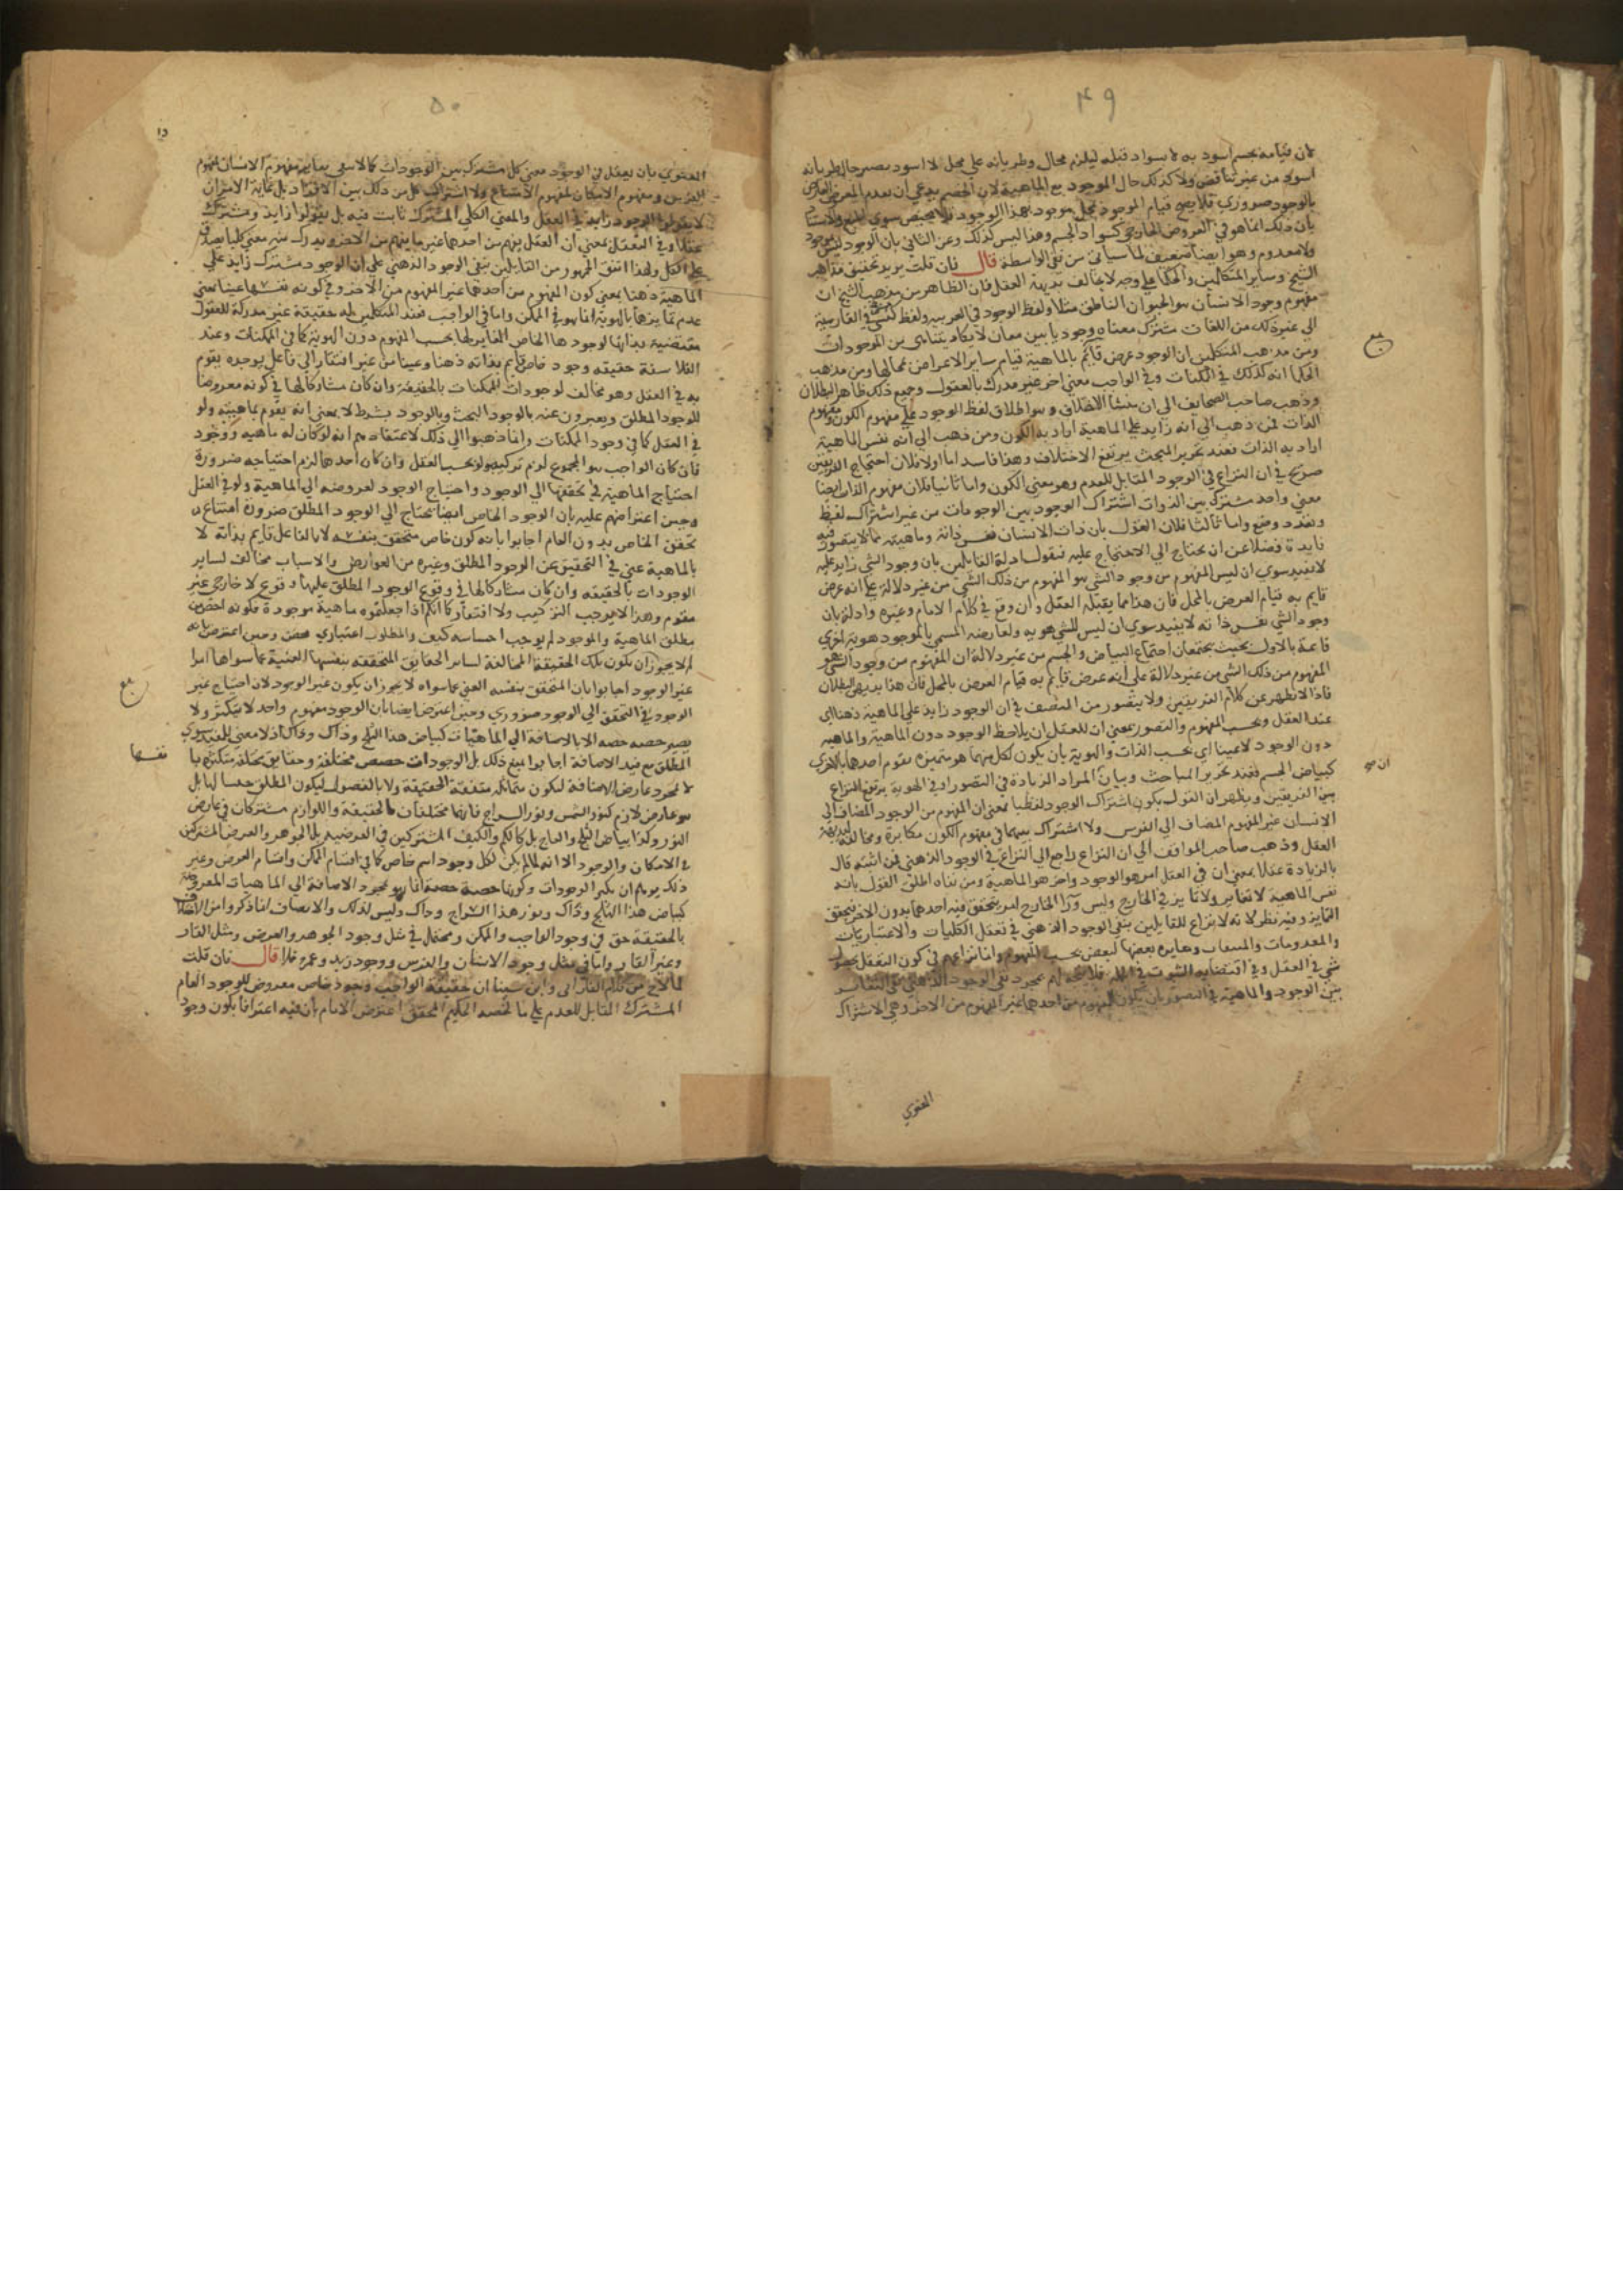 ٤٩
لان قيامه بجسم اسود به لا بسواد قبله ليلزم محال وطريانه علي محل لا اسود بصير حال طريانه
اسود من غير تناقض ولا كذلك حال الوجود مع الماهية لان الخصم يدعي ان تعدم المعروض
بالوجود ضروري فلا يصح قيام الوجود بمحل موجود بهذا الوجود
بان ذلك انما هو في العروض الخارجي كسواد الجسم وهذا ليس كذلك وعن الثاني بان الوجود ليس بموجود
ولا معدوم وهو ايضا ضعيف لما سياتي من نفي الواسطة قال فان قلت يريد تحقيق مذاهب
الشيخ وساير المتكلمين والحكما علي وجه لا يخالف بديهة العقل فان الظاهر من مذهب الشيخ ان
مفهوم وجود الانسان هو الحيوان الناطق مثلا ولفظ الوجود في العربيه ولفظ في الفارسية
الي غير ذلك من اللغات مشترك معناه وجوديا بين معان لا يكاد يتناهى من الموجودات
ومن مذهب المتكلمين ان الوجود عرض قايم بالماهية قيام ساير الاعراض بمحالها ومن مذهب
الحكما انه كذلك في الممكنات وفي الواجب معني اخر غير مدرك بالعقول وجميع ذلك ظاهر البطلان
وذهب صاحب الصحايف الي ان منشا الاختلاف هو اطلاق لفظ الوجود علي مفهوم الكون ومفهوم
الذات فمن ذهب الي انه زايد علي الماهية اراد به الكون ومن ذهب الي انه نفس الماهية
اراد به الذات فعند تحرير المبحث يرتفع الاختلاف وهذا فاسد اما اولا فلان احتجاج الفريقين
صريح في ان النزاع في الوجود المقابل للعدم وهو معني الكون واما ثانيا فلان مفهوم الذات ايضا
معني واحد مشترك بين الذوات اشتراك الوجود بين الوجودات من غير اشتراك لفظ
وتعدد وضع واما ثالثا فلان القول بان ذات الانسان نفس ذاته وماهيته مما لا يتصور فيه
فايدة فضلا عن ان يحتاج الي الاحتجاج عليه فنقول ادلة القايلين بان وجود الشي زايد عليه
لا يفيد سوي ان ليس المفهوم من وجود الشي هو المفهوم من ذلك الشي من غير دلالة علي انه عرض
قايم به قيام العرض بالمحل فان هذا مما يقبله العقل وان وقع في كلام الامام وغيره وادلة بان
وجود الشي نفس ذاته لا يفيد سوي ان ليس للشي هويه ولعارضه المسمي بالوجود هوية اخري
قايمة بالاولي بحيث يجتمعان اجتماع البياض والجسم من غير دلالة ان المفهوم من وجود الشي هو
المفهوم من ذلك الشي من غير دلالة علي انه عرض قايم به قيام العرض بالمحل فان هذا بديهي البطلان
فاذا لا تظهر من كلام الفريقين ولا يتصور من المنصف في ان الوجود زايد علي الماهية ذهنا اي
عند العقل وبحسب المفهوم والتصور بمعني ان للعقل ان يلاحظ الوجود دون الماهية والماهيه
دون الوجود لا عينا اي بحسب الذات والهوية بان يكون لكل منهما هو متميزه تقوم احدهما بالاخري
كبياض الجسم فعند تحرير المباحث وبيان المراد الزيادة في التصور او في الهوية يرتفع النزاع
بين الفريقين ويظهر ان القول بكون اشتراك الوجود لفظيا بمعني ان المفهوم من الوجود المضاف الي
الانسان غير المفهوم المضاف الي الفرس ولا اشتراك بينهما في مفهوم الكون مكابرة ومخالفة لبديهة
العقل وذهب صاحب المواقف الي ان النزاع راجع الي النزاع في الوجود الذهني فمن اثبته قال
بالزيادة عقلا بمعني ان في العقل امر هو الوجود واخر هو الماهية ومن نفاه اطلق القول بانه
نفس الماهية لا تغاير ولا تمايز في الخارج وليس ورا الخارج امر يتحقق فيه احدهما بدون الاخر فيتحقق
التمايز وفيه نظر لانه لا نزاع للقايلين بنفي الوجود الذهني في تعقل الكليات والاعتباريات
والمعدومات والممتنعات ومغايرة بعضها لبعض بحسب المفهوم وانما نزاعهم في كون التعقل بحصول
شي في العقل وفي اقتضايه الثبوت في الجملة فلا يتجه لهم بمجرد نفي الوجود الذهني نفي التغاير
بين الوجود والماهية في التصور بان يكون المفهوم من احدهما غير المفهوم من الاخر وفي الاشتراك
المعنوي
٥٠
المعنوي بان يعقل في الوجود معني كلي مشترك بين الوجودات كما لا نفي تغاير مفهوم الانسان لمفهوم
الفرس ومفهوم الامكان لمفهوم الامتناع ولا اشتراك كل من ذلك بين الافراد بل غاية الامر ان
لا يقولوا الوجود زايد في العقل والمعني الكلي المشترك ثابت فيه بل يقولوا زايد ومشترك
عقلا وفي التعقل بمعني ان العقل يفهم من احدهما غير ما يفهم من الاخر ويدرك منه معني كليا يصدق
علي الكل ولهذا اتفق الجمهور من القايلين بنفي الوجود الذهني علي ان الوجود مشترك زايد علي
الماهية ذهنا بمعني كون المفهوم من احدهما غير المفهوم من الاخر وفي كونه نفسها عينا بمعني
عدم تمايزهما بالهوية انما هو في الممكن واما في الواجب فعند المتكلمين له حقيقة غير مدركة للعقول
مقتضية بذاتها لوجودها الخاص المغاير لها بحسب المفهوم دون الهوية كما في الممكنات وعند
الفلاسفة حقيقته وجود خاص قايم بذاته ذهنا وعينا من غير افتقار الي فاعل يوجده او محل يقوم
به في العقل وهو مخالف لوجودات الممكنات بالحقيقة وان كان مشاركا لها في كونه معروضا
للوجود المطلق ويعبرون عنه بالوجود البحت وبالوجود بشرط لا بمعني انه لا يقوم بماهيته ولو
في العقل كما في وجود الممكنات وانما ذهبوا الي ذلك لاعتقادهم انه لو كان له ماهيه ووجود
فان كان الواجب هو المجموع لزم تركيبه ولو بحسب العقل وان كان احدهما لزم احتياجه ضرورة
احتياج الماهية في تحققها الي الوجود واحتياج الوجود لعروضه الي الماهية ولو في العقل
وحين اعترضهم عليه بان الوجود الخاص ايضا يحتاج الي الوجود المطلق ضرورة امتناع
تحقق الخاص بدون العام اجابوا بانه كون خاص متحقق بنفسه لا بالفاعل قايم بذاته لا
بالماهية غني في التحقيق عن الوجود المطلق وغيره من العوارض والاسباب مخالف لساير
الوجودات بالحقيقه وان كان مشاركا لها في وقوع الوجود المطلق عليها وقوع لازم خارجي غير
مقوم وهذا لا يوجب التركيب ولا افتقار كما انكم اذا جعلتموه ماهية موجودة فكونه اخص من
مطلق الماهية والموجود لم يوجب احتياجه كيف والمطلق اعتباري محض وحين اعترض بانه
لم لا يجوز ان يكون تلك الحقيقة المخالفة لساير الحقايق المتحققه بنفسها الغنية عما سواها امرا
غير الوجود اجابوا بان المتحقق بنفسه الغني عما سواه لا يجوز ان يكون غير الوجود لان احتياج غير
الوجود في التحقق الي الوجود ضروري وحين اعترض ايضا بان الوجود مفهوم واحد لا يتكثر ولا
يصير حصه حصه الا بالاضافة الي الماهيات كبياض هذا الثلج وذاك وذاك اذ لا معني للمقيد سوي
المطلق مع قيد الاضافة اجابوا بمنع ذلك بل الوجودات حصص مختلفة وحقايق مختلفة متكثرة بانفسها
لا بمجرد عارض الاضافة ليكون متماثلة متفقة الحقيقة ولا بالفصول ليكون المطلق جنسا لها بل
هو عارض لازم كنور الشمس ونور السراج فانهما مختلفان بالحقيقة واللوازم مشتركان في عارض
النور وكذا بياض الثلج والعاج بل كالكم والكيف المشتركين في العرضية بل الجوهر والعرض المشتركين
في الامكان والوجود الا انه لما لم يكن لكل وجود اسم خاص كما في اقسام الممكن واقسام العرض وغير
ذلك توهم ان تكثر الوجودات وكونها حصة حصة انما هو بمجرد الاضافة الي الماهيات المعروضة
كبياض هذا الثلج وذاك ونور هذا السراج وذاك وليس كذلك والانصاف ان ما ذكروا من الاختلاف
بالحقيقة حق في وجود الواجب والممكن ومحتمل في مثل وجود الجوهر والعرض ومثل القار
وغير القار واما في مثل وجود الانسان والفرس ووجود زيد وعمرو فلا قال فان قلت
لما لاح من كلام الفارابي وابن سينا ان حقيقة الواجب وجود خاص معروض للوجود العام
المشترك المقابل للعدم علي ما لخصه الحكيم المحقق اعترض الامام بان فيه اعترافا بكون وجود